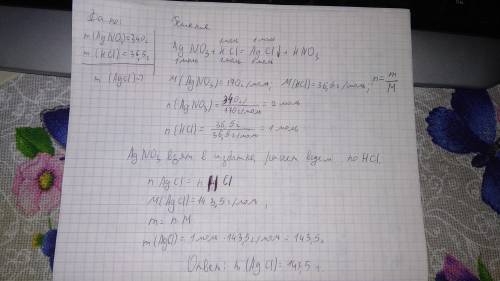 Дано:
m(AgNO₃)=340г
m(HCl)=36,5г
m(AgCl)-?
Решение
1 моль 1 моль
AgNO₃+HCl=AgCl↓+HNO₃
1 моль 1 моль 1 моль
M(AgNO₃)=170г/моль, M(HCl)=36,5г/моль; n=m/M
n(AgNO₃)=340г/170г/моль=2 моль
n(HCl)=36,5г/36,5г/моль=1 моль
AgNO₃ взят в избытке, расчет ведем по HCl.
n AgCl = n HCl
M(AgCl)=143,5г/моль,
m=n M
m(AgCl)=1моль·143,5г/моль=143,5г
Ответ: m(AgCl)=143,5г